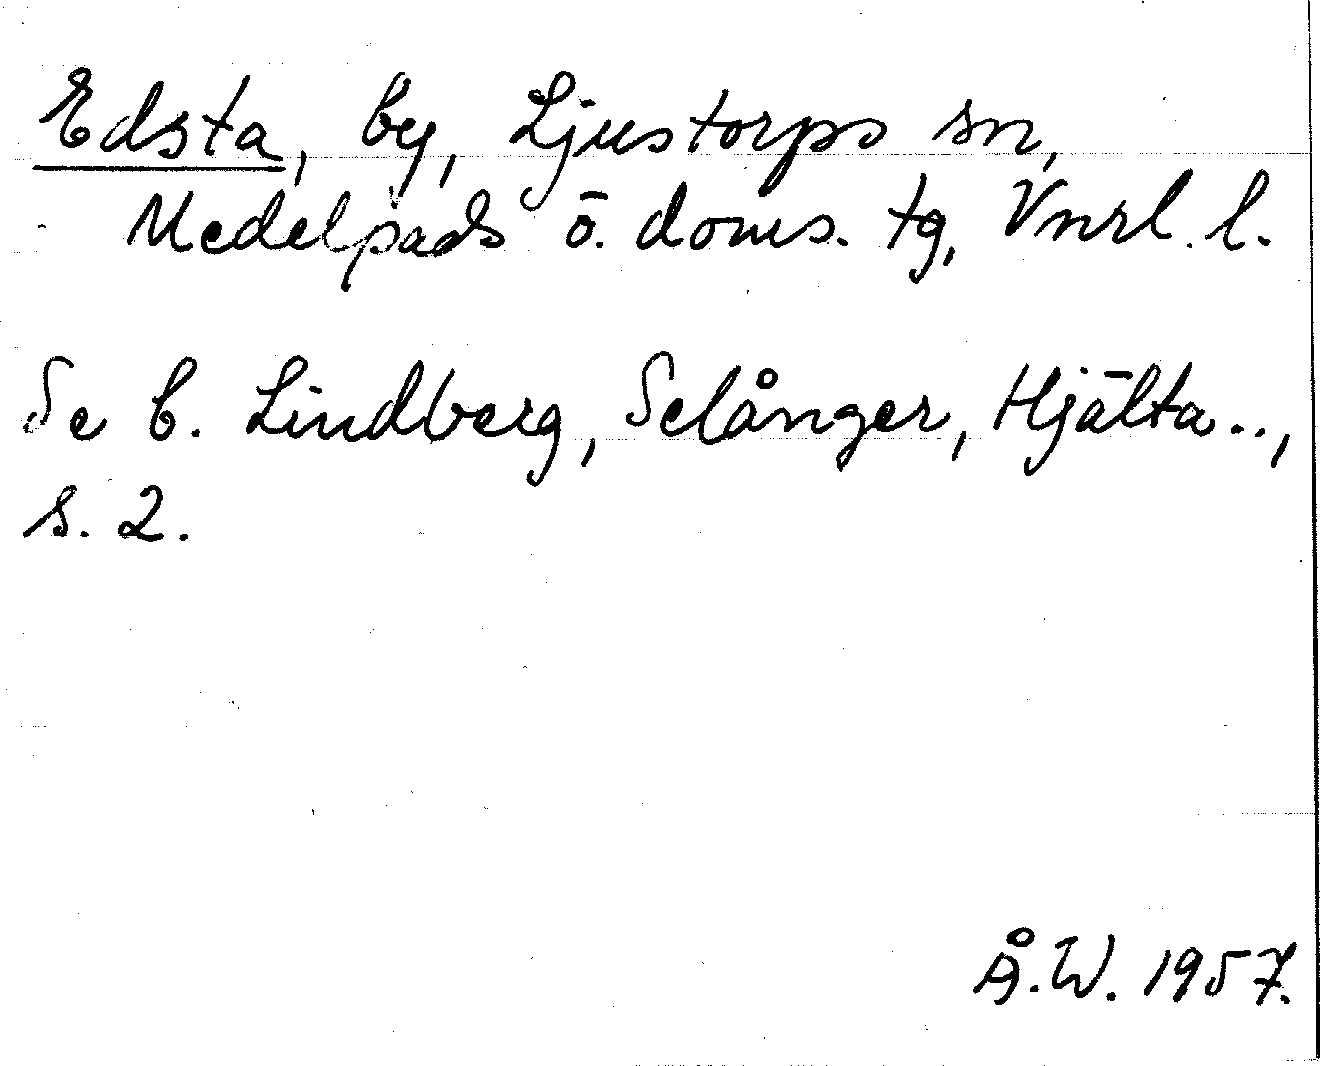 Edsta, by, Ljustorps sn,
Medelpads ö. doms. tg, Vnrl. l.
Se b. Lindberg, Selånger, Hjälta..,
s. 2.
Å.W. 1957.